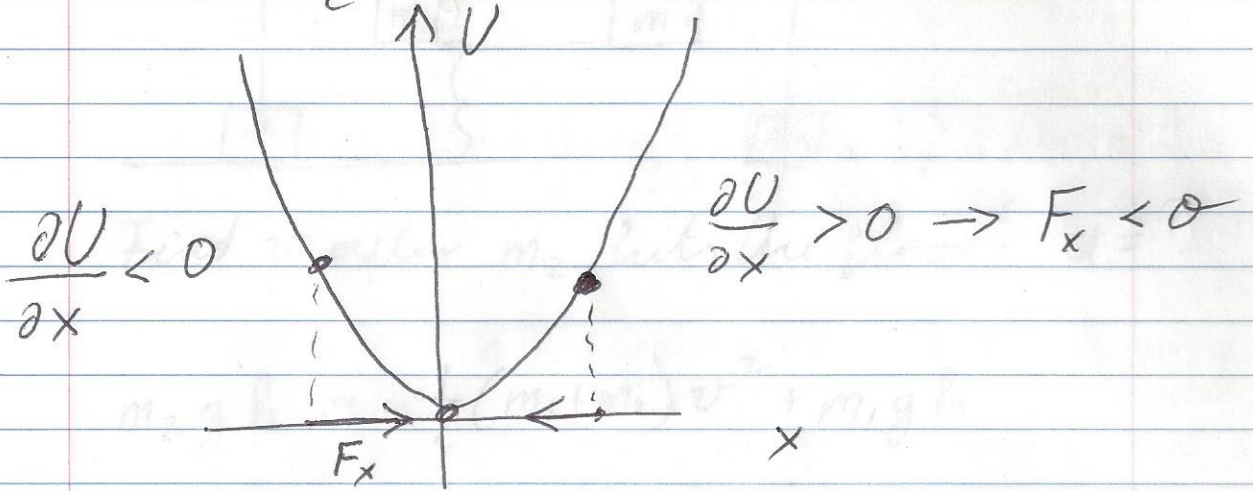 U
∂U/∂x < 0
∂U/∂x > 0 → Fₓ < 0
Fₓ
x